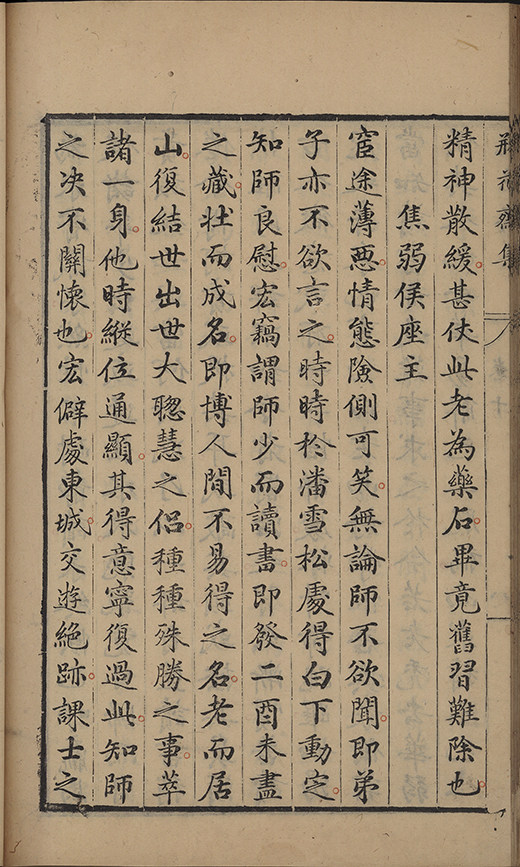 精神散緩甚仗此老為藥石畢竟舊習難除也
焦弱侯座主
宦途薄惡情態險側可笑無論師不欲聞即弟
子亦不欲言之時時於潘雪松處得白下動定
知師良慰宏竊謂師少而讀書即發二酉未盡
之藏壯而成名即博人間不易得之名老而居
山復結世出世大聰慧之侶種種殊勝之事萃
諸一身他時縱位通顯其得意寧復過此知師
之决不關懷也宏僻處東城交遊絕跡課士之